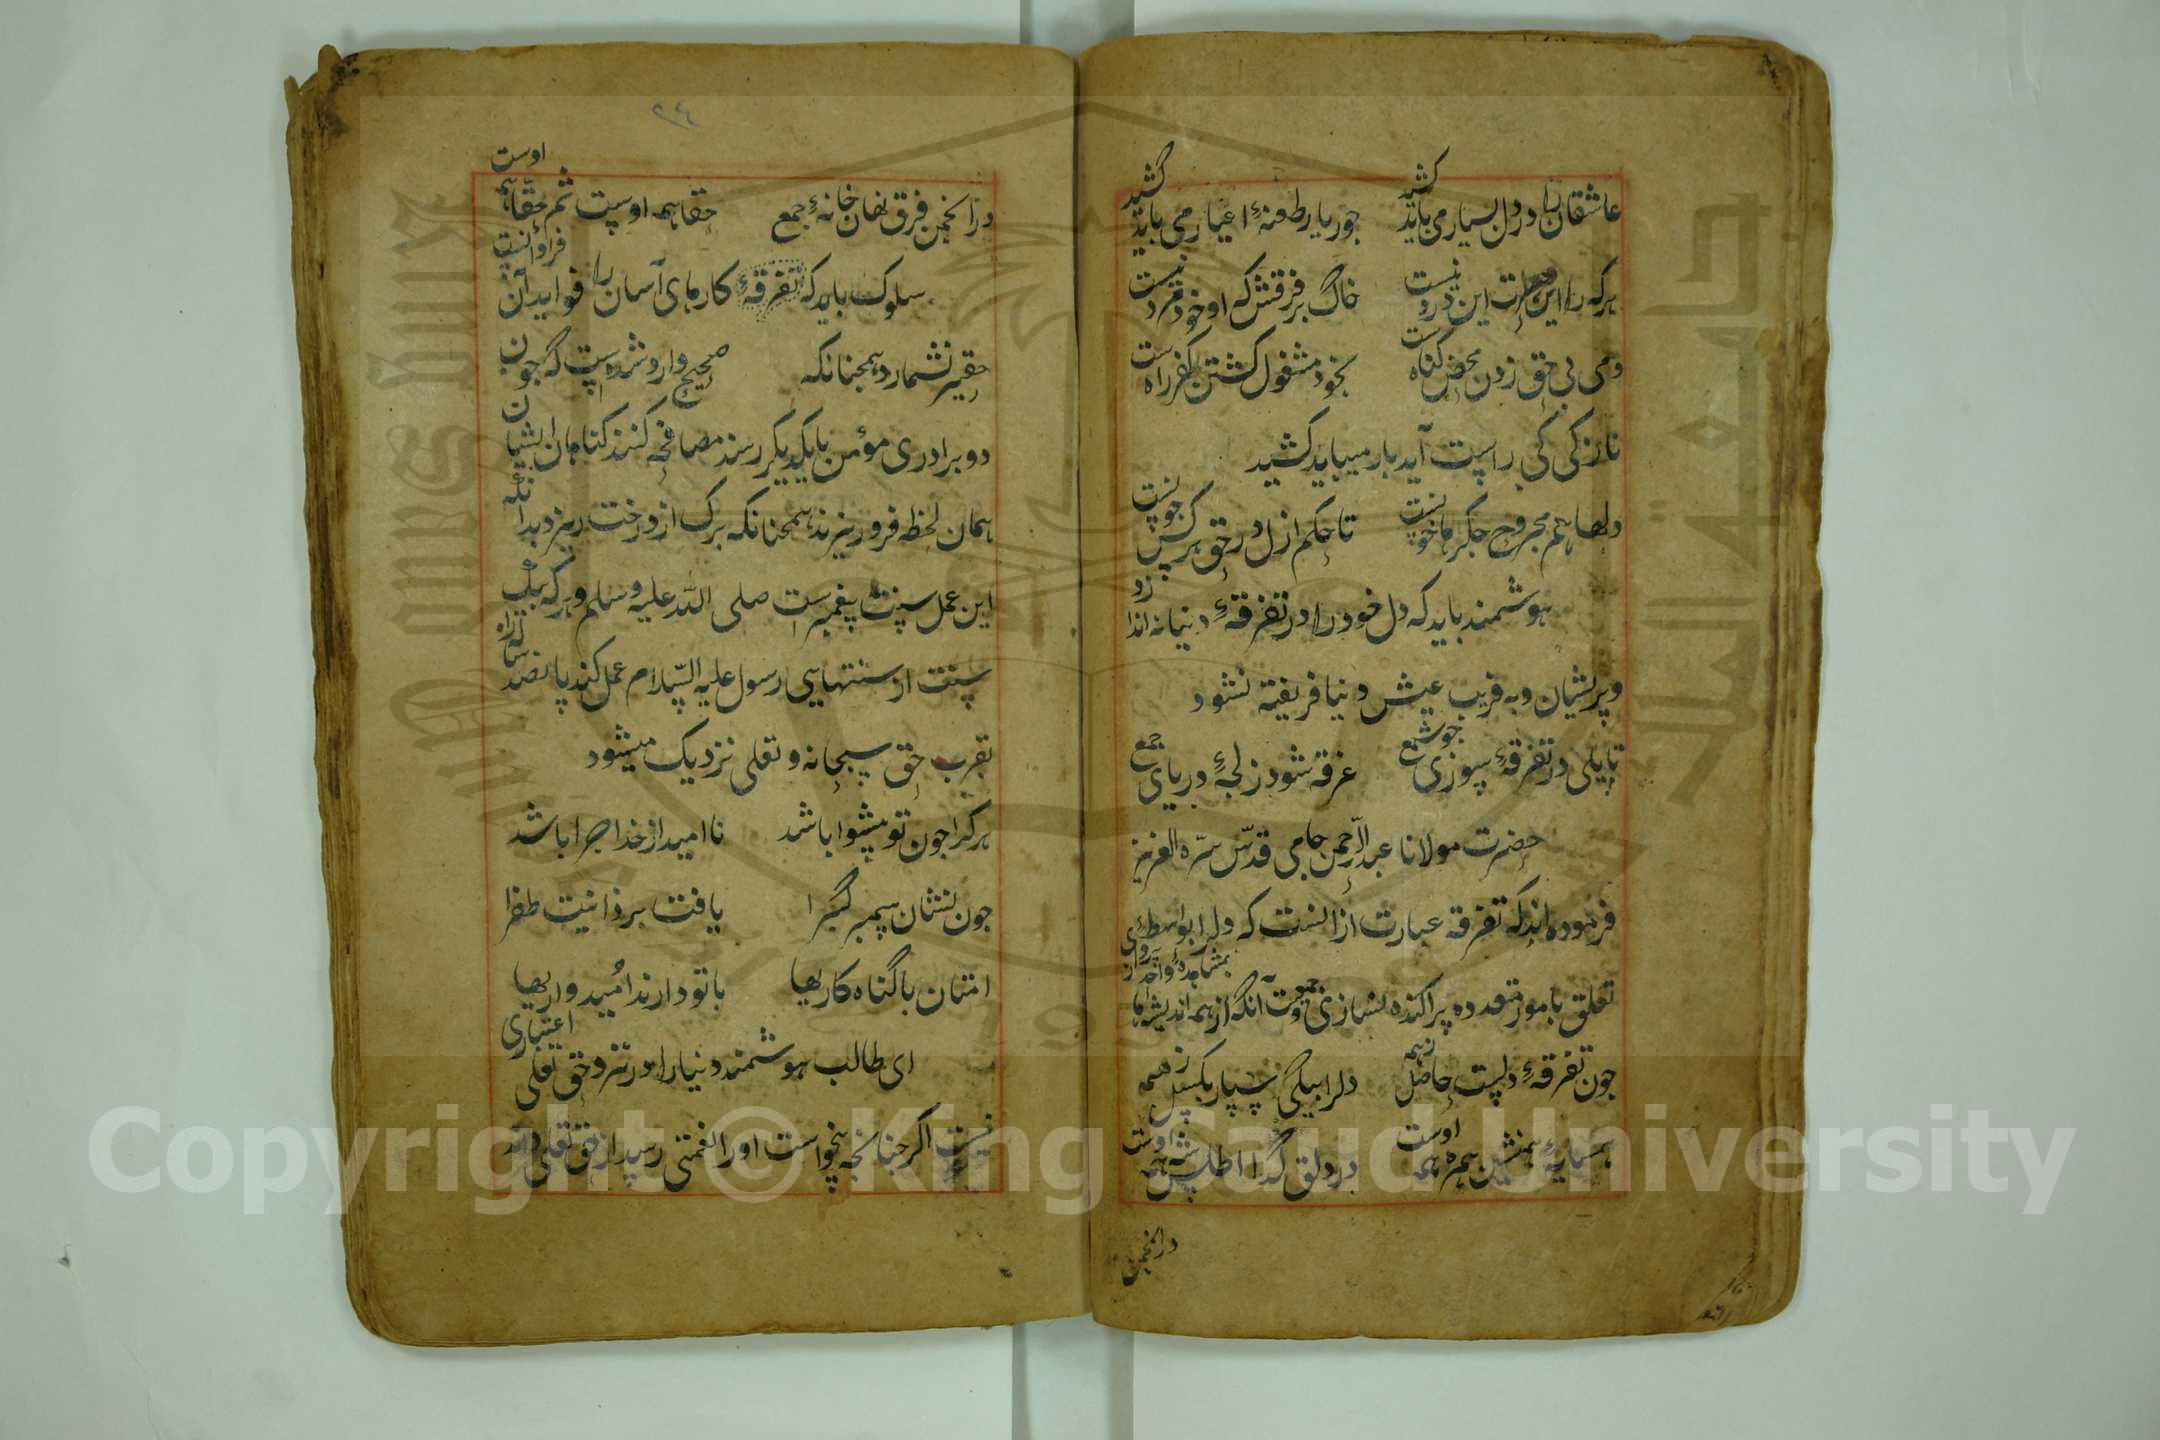 عاشقان را درد دل بسیار می باید کشید جور یار و طعنهٔ اغیار می باید کشید
هرکه را این عشرت این درد نیست خاک بر فرقش که او خود مرد نیست
دمی بی حق زدن محض گناه است بخود مشغول کشتن کفر راه است
نازکی کی راست آید بار میباید کشید
دلها هم مجروح جگرها خونست تا حکم ازل در حق هرکس چونست
هوشمند باید که دل خود را در تفرقهٔ دنیا نه اندازد
و پریشان و به فریب عیش دنیا فریفته نشود
تا پای در تفرقهٔ سوزی جو شمع غرقه شود ز لجهٔ دریای جمع
حضرت مولانا عبد الرحمن جامی قدس سره العزیز
فرموده اند که تفرقه عبارت از انست که دلرا بواسطهٔ
تعلق بامور متعدده پراکنده نسازی و جمعیت آنکه از همه اندیشه ها بمشاهدهٔ واحد از پروای
جون تفرقهٔ دلست حاصل ز همه دلرا بیکی سپار بکسل ز همه
همسایهٔ همنشین همره همه اوست در دلق کدا اطلس شه همه اوست
در انجمن
٢٤
در انجمن فرق نهان خانهٔ جمع حقا همه اوست ثم حقا همه اوست
سلوک باید که تفرقهٔ کارهای آسان را فواید آن فراوانست
حقیر نشمارد همجنانکه صحیح وارد شده است که جون
دو برادری مؤمن بایکدیکر رسند مصافحه کنند کناهان ایشان
همان لحظه فرو ریزند همجنانکه برک از درخت ریزد بدانکه
این عمل سنت پیغمبر است صلی الله علیه وسلم و هرکه بیک
سنت از سنتهایی رسول علیه السلام عمل کند پانصد ساله راه
بقرب حق سبحانه و تعلی نزدیک میشود
هرکرا جون تو پیشوا باشد نا امید از خدا جرا باشد
جون نشان پیمبر کبرا یافت بر ذانیت طغرا
امتان با کناه کاریها با تو دارند امید واریها
ای طالب هوشمند دنیا را در نزد حق تعلی اعتباری
نیست اکر جنانجه بخواست او را نعمتی رسید از حق تعلی داند
Copyright © King Saud University
King Saud University
جامعة الملك سعود